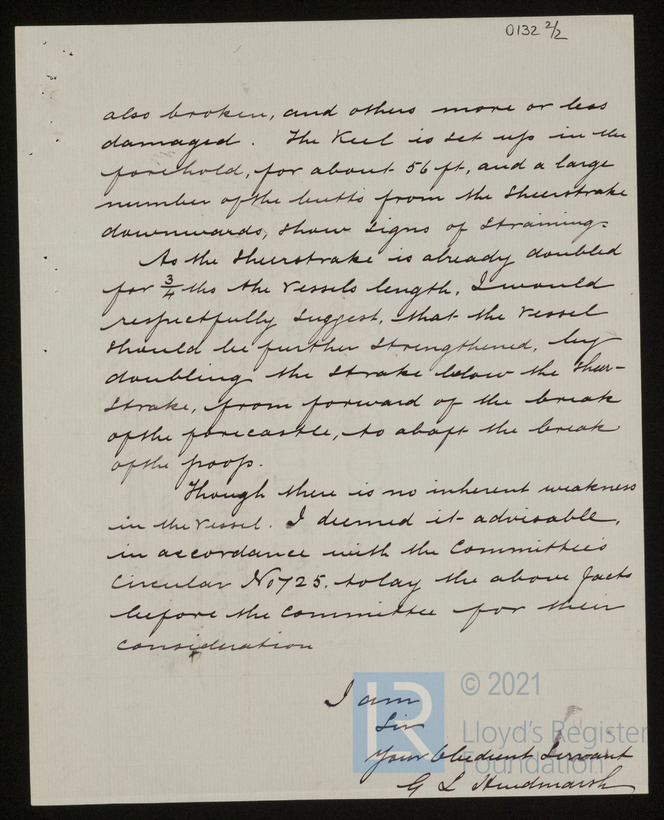 0132 2/2
also broken, and others more or less
damaged. The Keel is set up in the
forehold, for about 56 ft, and a large
number of the butts from the Sheerstrake
downwards, show signs of Straining.
As the Sheerstrake is already doubled
for 3/4 ths the vessels length, I would
respectfully suggest, that the vessel
should be further strengthened, by
doubling the strake below the Sheer-
strake, from forward of the break
of the forecastle, to abaft the break
of the poop.
Though there is no inherent weakness
in the vessel. I deemed it advisable,
in accordance with the Committee's
Circular No 725. to lay the above facts
before the Committee for their
consideration
I am
Sir
Your Obedient Servant
G L Hindmarsh
LR
© 2021
Lloyd's Register
Foundation